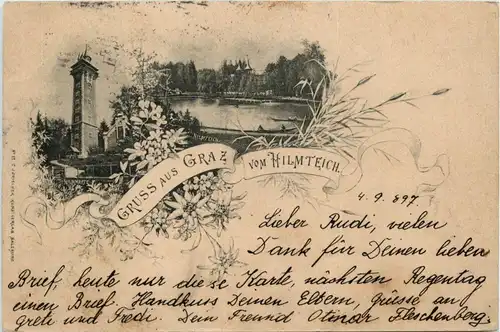 GRUSS AUS GRAZ
VOM HILMTEICH.
4. 9. 897.
Lieber Rudi, vielen
Dank für Deinen lieben
Brief, heute nur die se Karte, nächsten Regentag
einen Brief. Handkuss Deinen Eltern, grüsse an
greti und Fredi. Dein Freund Fleschenberg.